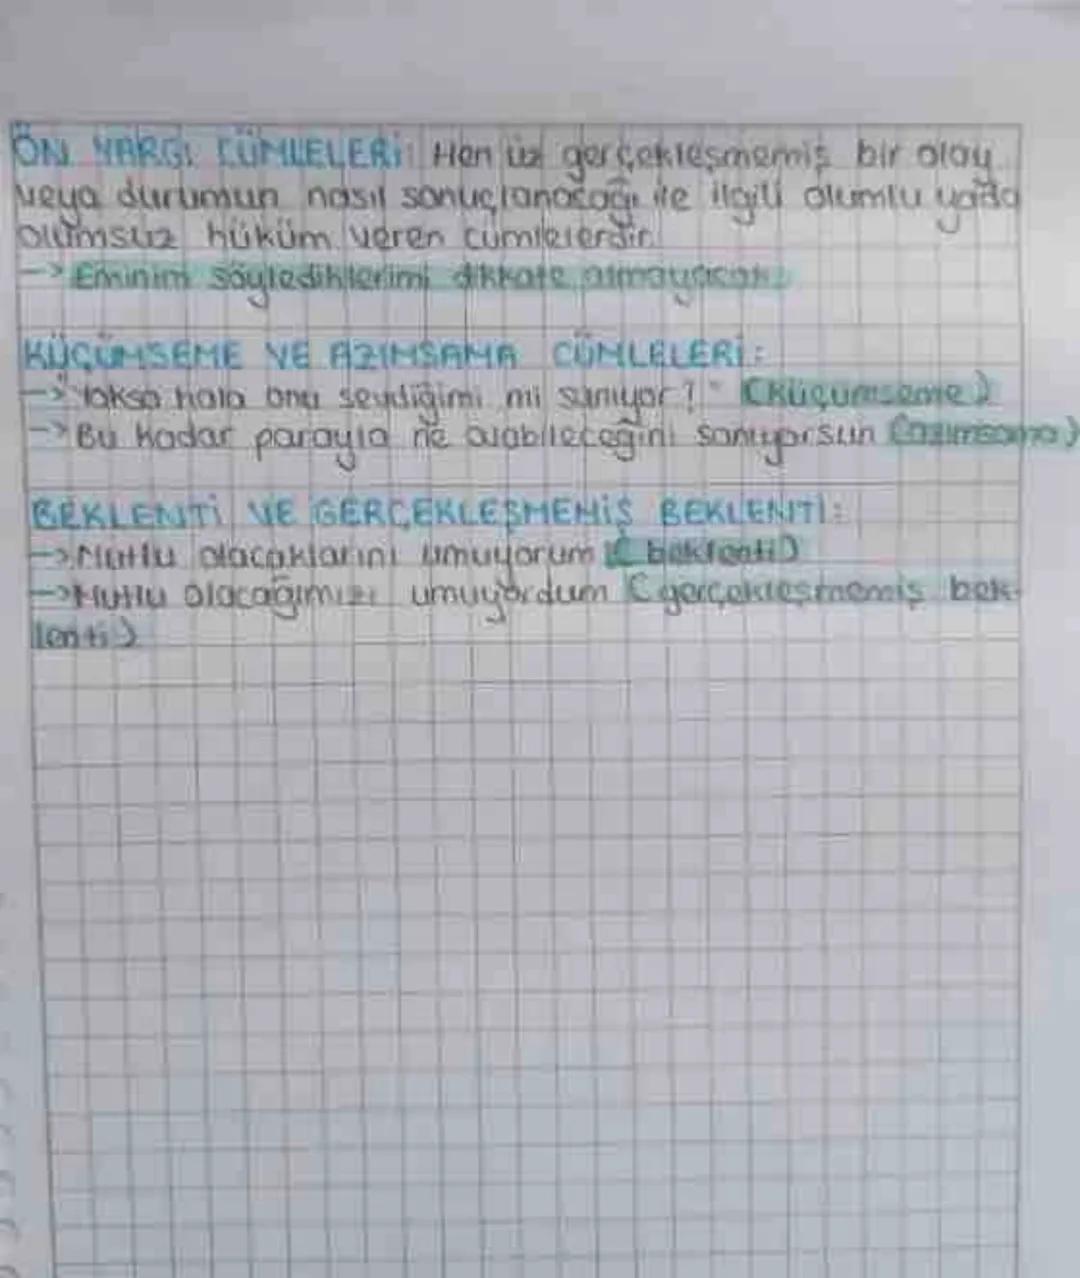 ÖN YARGI CÜMLELERİ: Hen üz gerçekleşmemiş bir olay
veya durumun nasıl sonuçlanacağı ile ilgili olumlu yada
olumsuz hüküm veren cümlelerdir.
-> Eminim söylediklerimi dikkate almayacak.
KÜÇÜMSEME VE AZIMSAMA CÜMLELERİ:
-> "Yoksa hala onu sevdiğimi mi sanıyor!" (Küçümseme)
-> Bu kadar parayla ne alabileceğini sanıyorsun (azımsama)
BEKLENTİ VE GERÇEKLEŞMEMİŞ BEKLENTİ:
-> Mutlu olacaklarını umuyorum (beklenti)
-> Mutlu olacağımızı umuyordum (gerçekleşmemiş bek-
lenti)